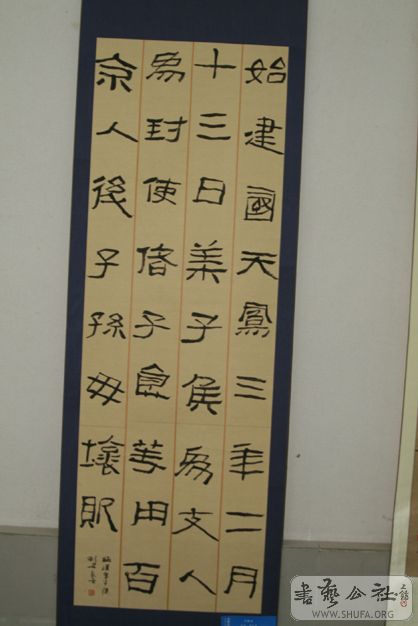 始建國天鳳三年二月
十三日萊子侯為支人
為封使偖子食等用百
余人後子孫毋壞敗
書藝公社
WWW.SHUFA.ORG